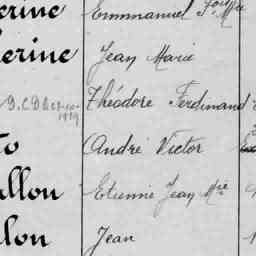 erine Emmanuel
erine Jean Marie
Théodore Ferdinand
to André Victor
allon Etienne Jean Mie
lon Jean